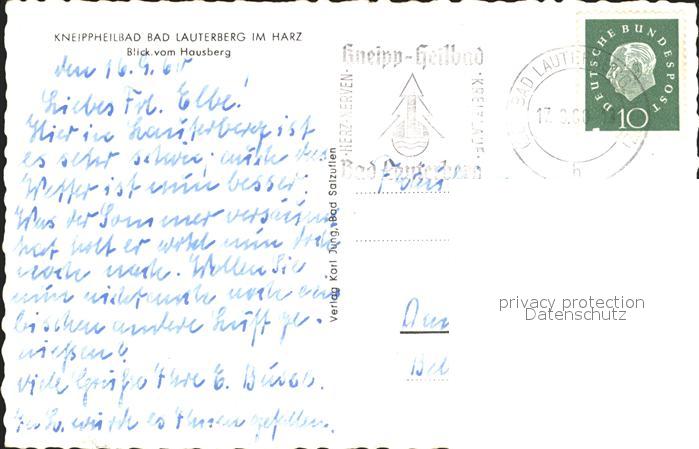 KNEIPPHEILBAD BAD LAUTERBERG IM HARZ
Blick vom Hausberg
den 16.9.60
Liebes Frl. Elbe!
Hier in Lauterberg ist
es sehr schön, auch das
Wetter ist nun besser.
Was der Sommer versäumt
hat holt er wohl nun doch
noch nach. Wollen Sie
nun nicht auch noch ein
bischen andere Luft ge-
nießen?
viele Grüße Ihre E.
würde es Ihnen gefallen.
Verlag Karl Jung, Bad Salzuflen
Kneipp-Heilbad
HERZ-NERVEN-
KREISLAUF
Bad Lauterberg
BAD LAUTER
17.9.60
b
DEUTSCHE BUNDESPOST
10
privacy protection
Datenschutz